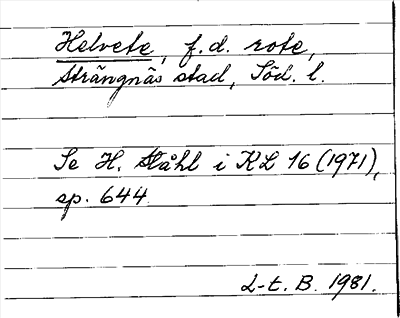 Helvete, f.d. rote,
Strängnäs stad, Söd. l.
Se H. Ståhl i KL 16 (1971),
sp. 644.
L-t. B. 1981.